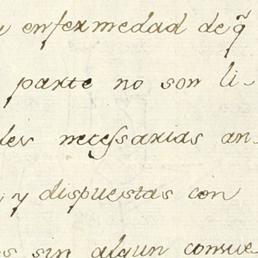 enfermedad de q̃
parte no son li-
des necessarias an-
y dispuestas con
sin algun consue